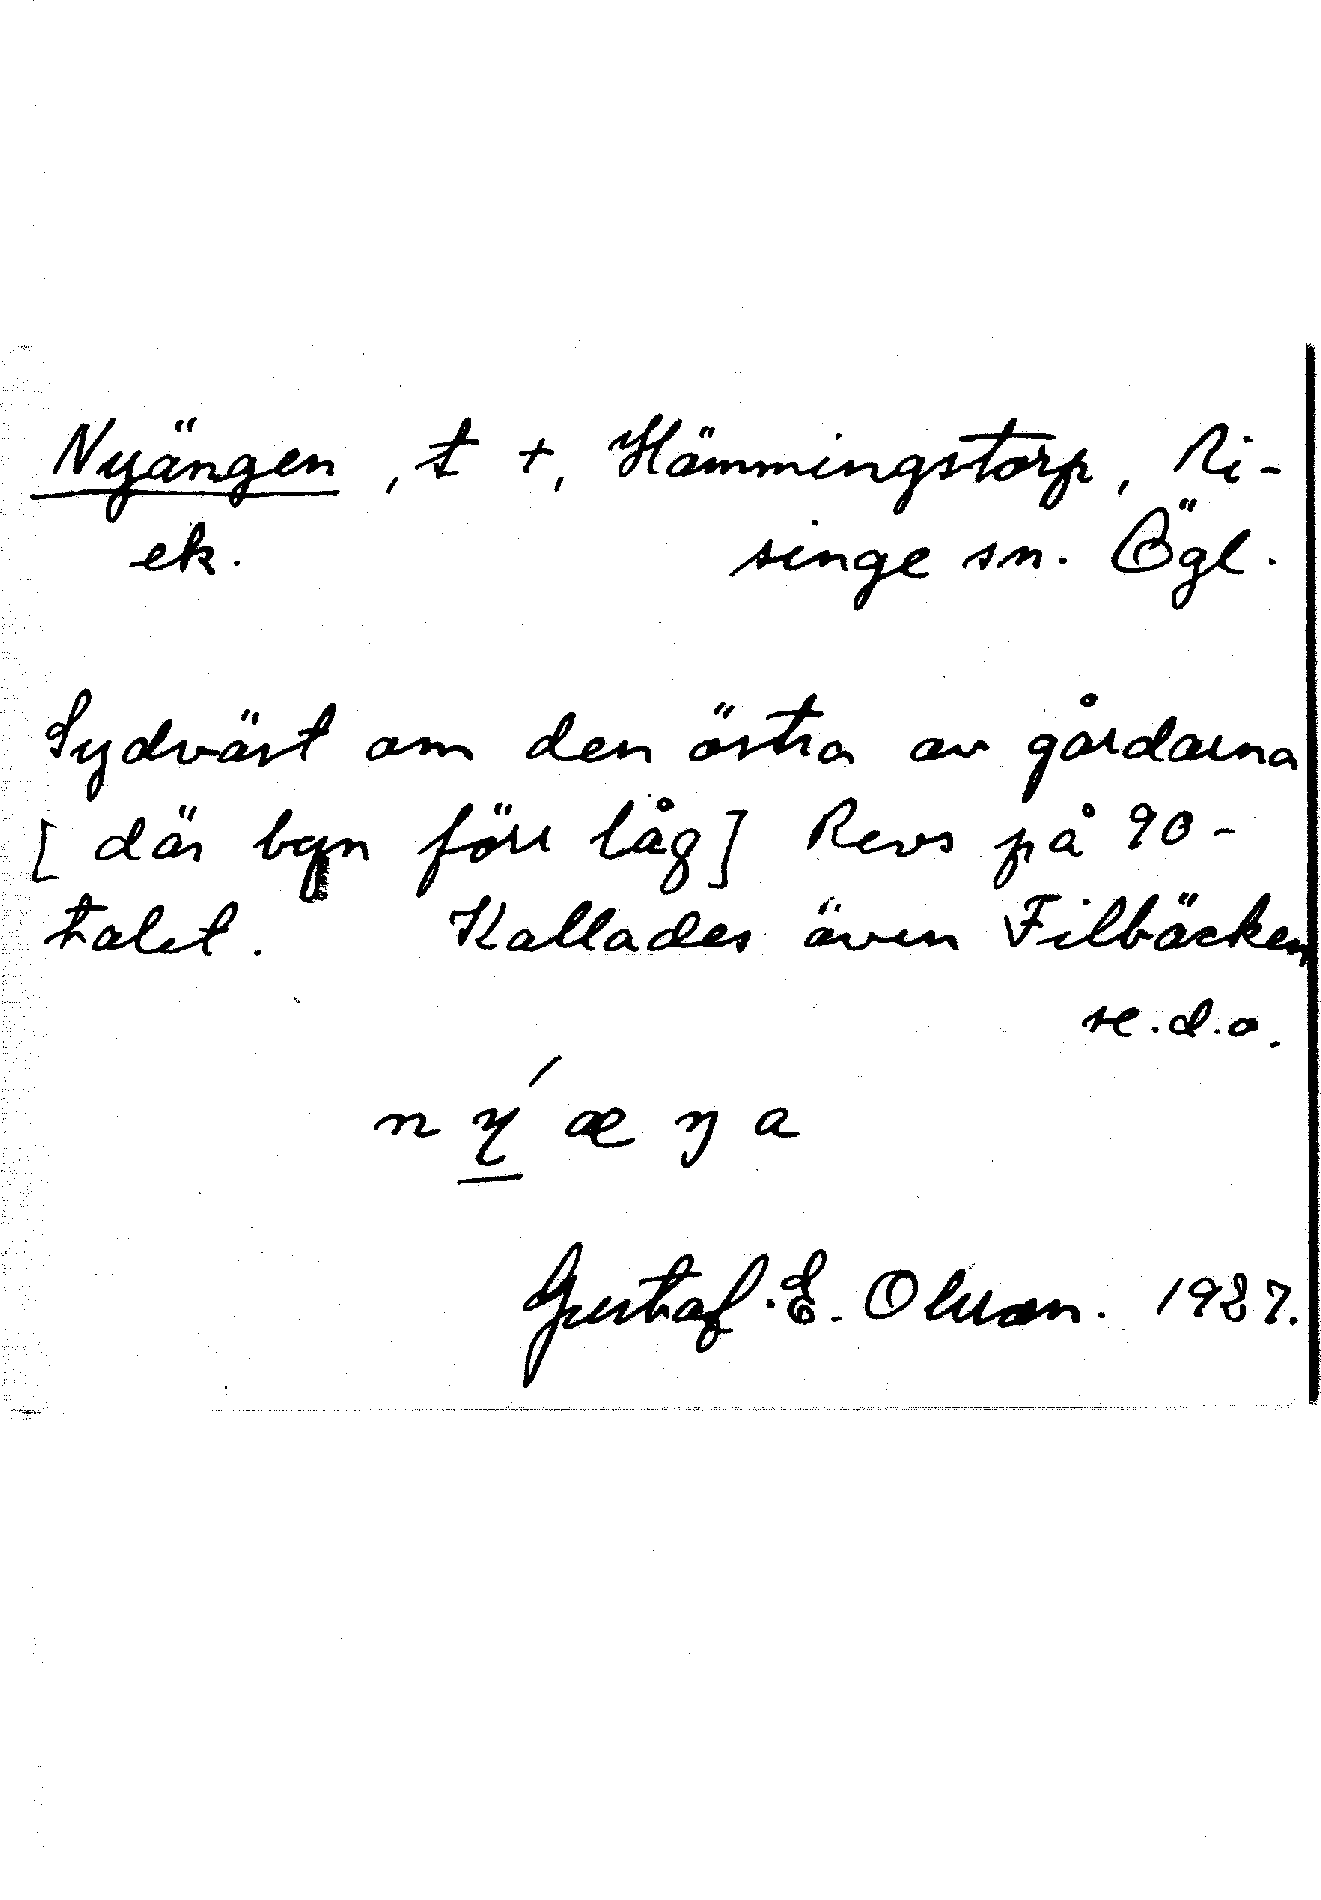 Nyängen, t +, Hämmingstorp, Ri-
ek. singe sn. Ögl.
Sydväst om den östra av gårdarna
[där byn förr låg] Revs på 90-
talet. Kallades även Filbäcken
se.d.o.
ný æŋa
Gustaf.E. Olsson. 1927.